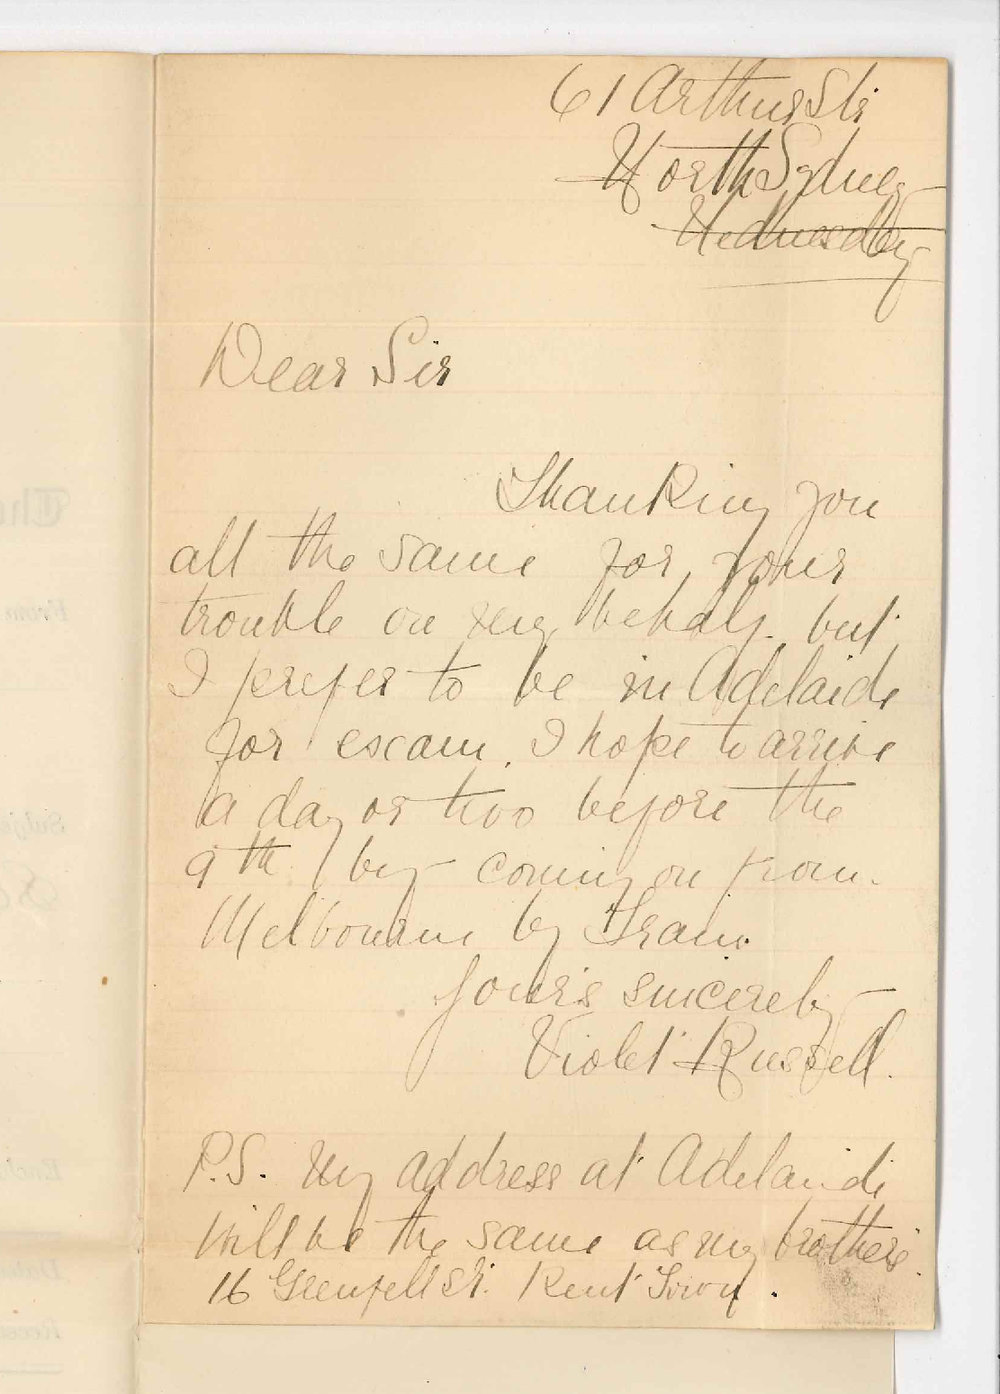 61 Arthur Str
North Sydney
Wednesday
Dear Sir
Thanking you
all the same for your
trouble on my behalf but
I prefer to be in Adelaide
for exam. I hope to arrive
a day or two before the
9th by coming on from
Melbourne by Train.
Yours sincerely
Violet Russell.
P.S. My address at Adelaide
will be the same as my brothers.
16 Grenfell St. Kent Town.